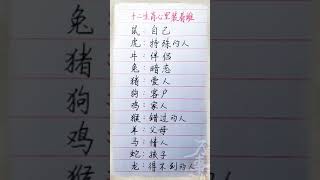 十二生肖心里装着谁
鼠：自己
虎：特殊的人
牛：伴侣
兔：暗恋
猪：爱人
狗：客户
鸡：家人
猴：错过的人
羊：父母
马：情人
蛇：孩子
龙：得不到的人
兔
猪
狗
鸡
猴